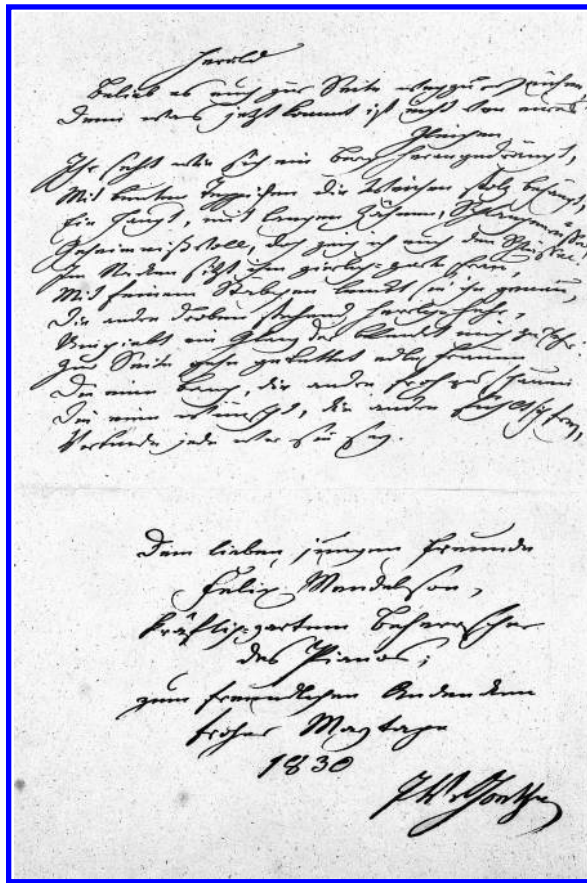 Herold
Belieb es euch zur Seite wegzuweichen,
Denn was jetzt kommt ist nicht von eures
Gleichen.
Ihr seht wie sich ein Berg herangedrängt,
Mit bunten Teppichen die Weichen stolz behängt,
Ein Haupt, mit langen Zähnen, Schlangenrüssel
Geheimnißvoll, doch zeig ich euch den Schlüssel.
Im Nacken sitzt ihm zierlich-zarte Frau,
Mit feinem Stäbchen lenkt sie ihn genau,
Die andre droben stehend herrlich-hehr,
Umgiebt ein Glanz der blendet mich zu sehr.
Zur Seite gehn gekettet edle Frauen
Die eine bang, die andre froh zu schauen
Die eine wünscht, die andre fühlt sich frey,
Verkünde jede wer sie sey.
Dem lieben jungen Freunde
Felix Mendelson,
kräftig-zartem Beherrscher
des Pianos;
zum freundlichen Andenken
froher Maytage
1830
JWvGoethe